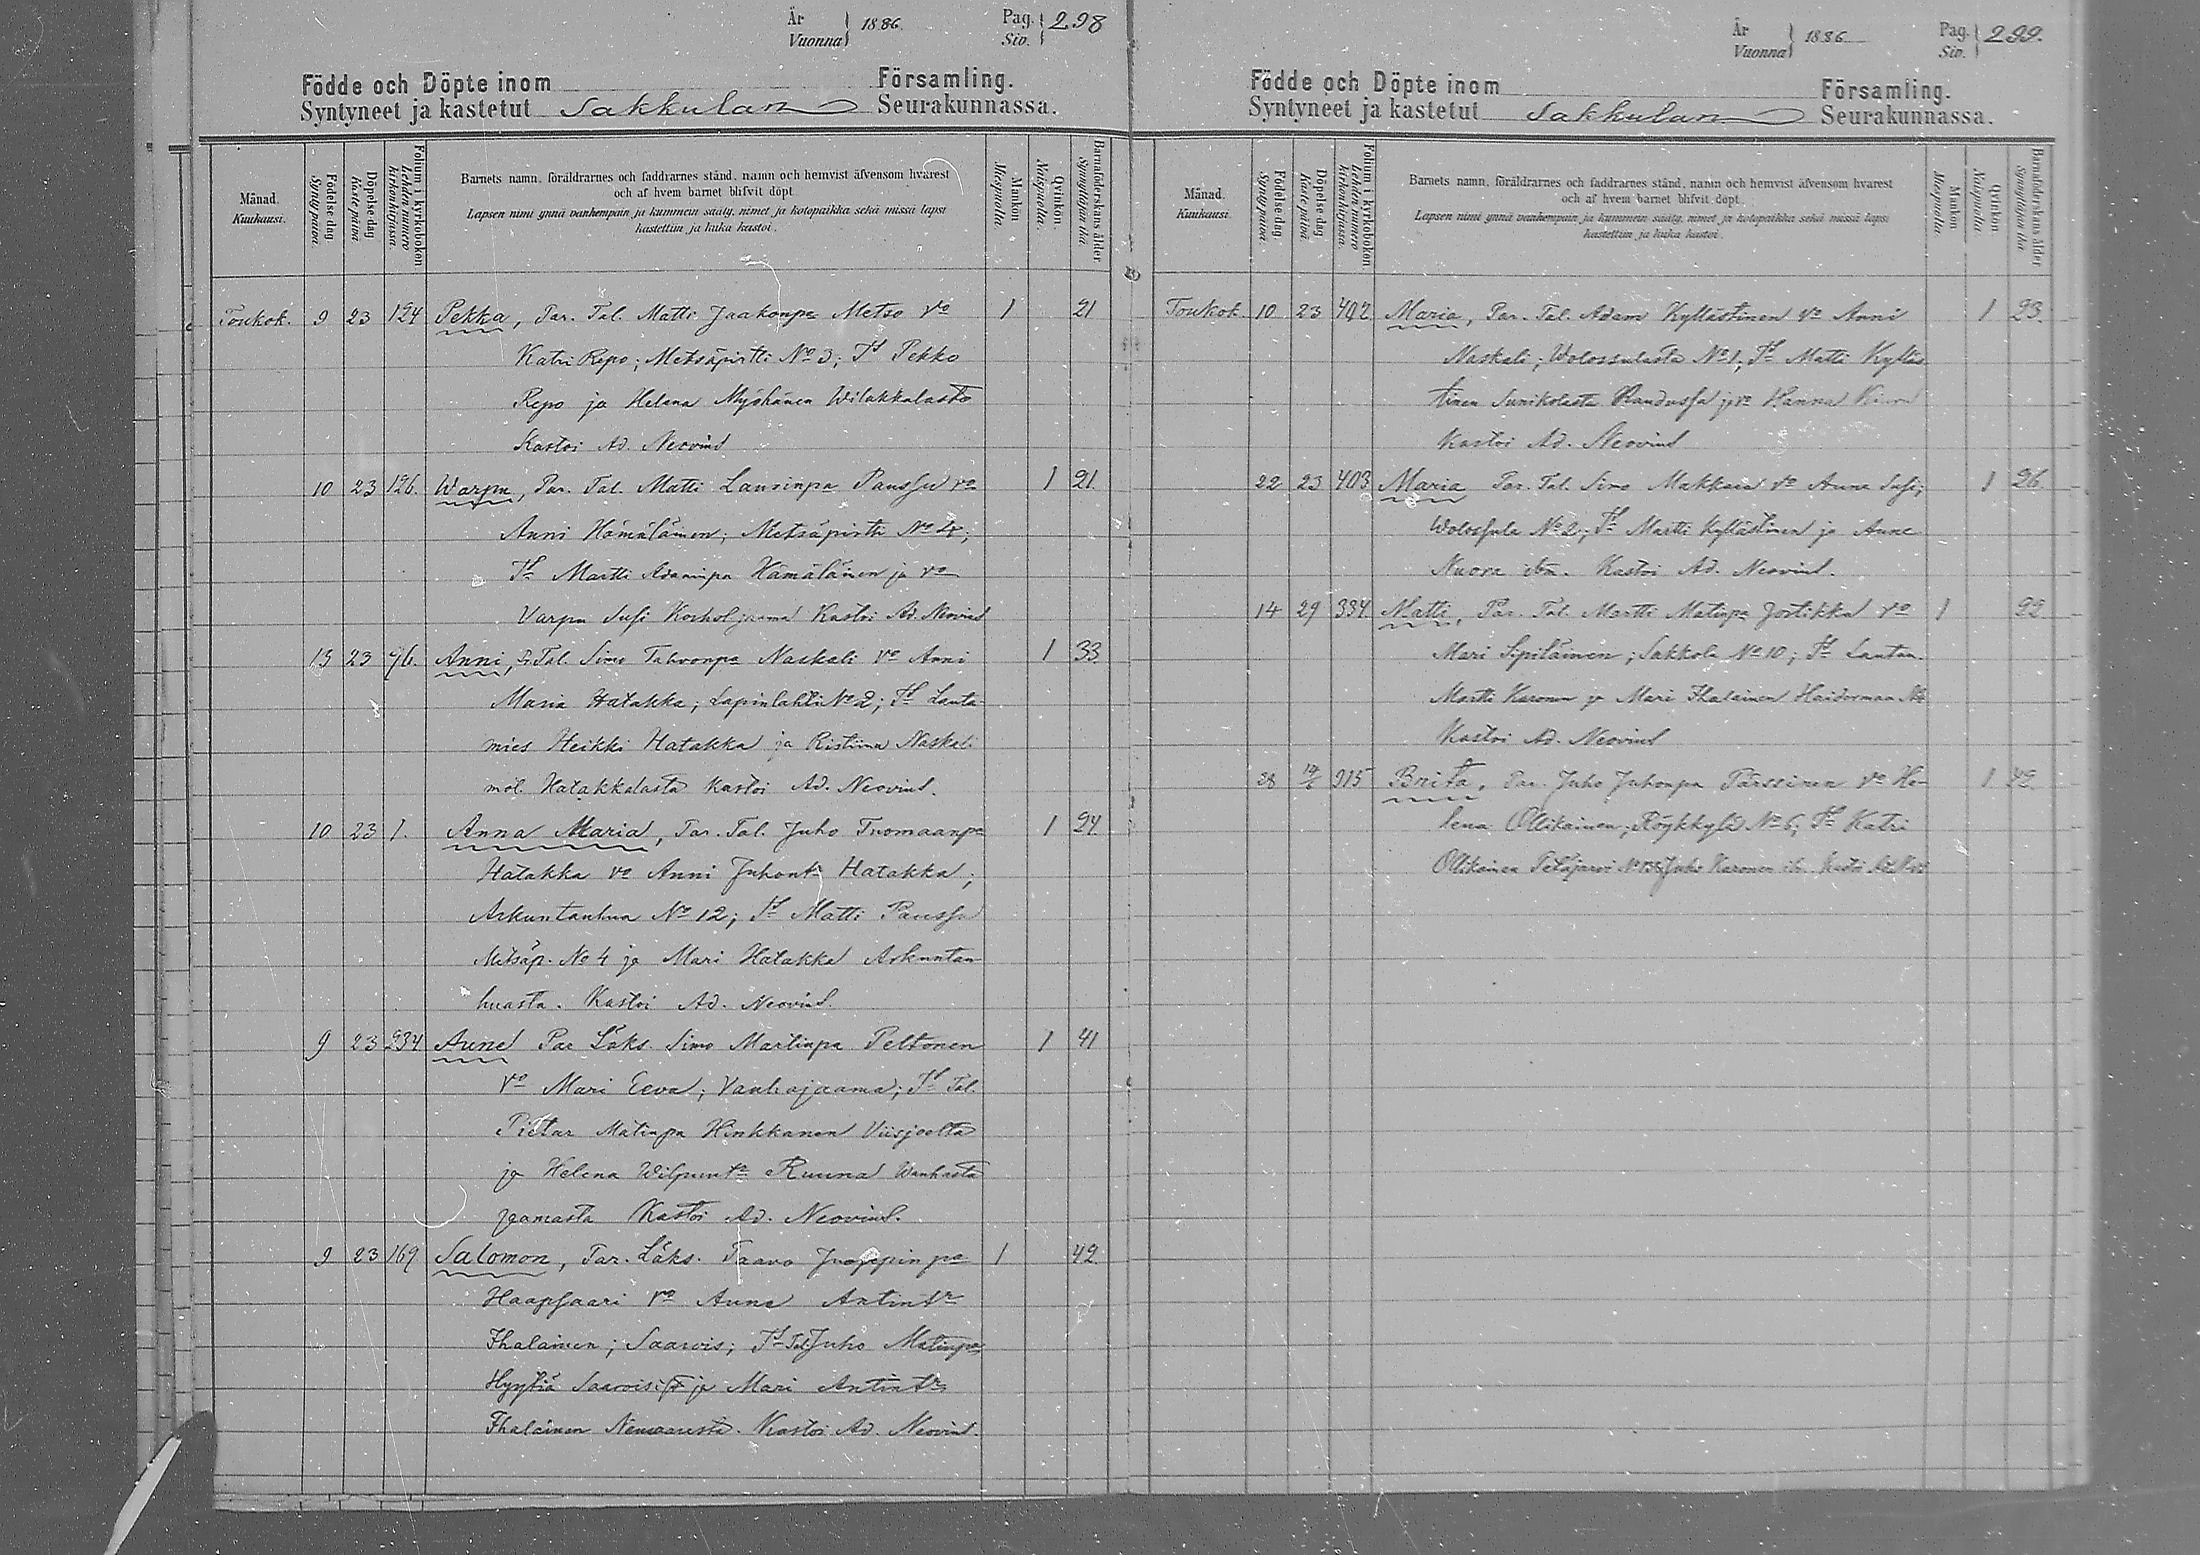 År
Vuonna } 1886. Pag. Siv. { 298
Födde och Döpte inom Församling.
Syntyneet ja kastetut Sakkulan Seurakunnassa.
Månad. Kuukausi.
Födelse dag. Syntypäivä.
Döpelse dag. Kaste päivä
Folium i kyrkoboken Lehden numero kirkonkirjassa.
Barnets namn, föräldrarnes och faddrarnes stånd, namn och hemvist äfvensom hvarest
och af hvem barnet blifvit döpt.
Lapsen nimi ynnä vanhempain ja kummein sääty, nimet ja kotopaikka sekä missä lapsi
kastettiin ja kuka kastoi.
Mankön Miespuolta.
Qvinkön. Naispuolta.
Barnaföderskans ålder Synnyttäjän ikä
Toukok. 9 23 124 Pekka, Tar. Tal. Matti Jaakonpa Metso Vo 1 21
Katri Repo; Metsäpirtti No 3; Td Pekko
Repo ja Helena Myöhänen Wilakkalasta
Kastoi Ad. Neovius
10 23 126. Warpu, Tar. Tal. Matti Laurinpa Paussu Vo 1 21.
Anni Hämäläinen; Metsäpirtti No 4;
Td Martti Adaminpa Hämäläinen ja Vo
Varpu Susi Korholjaama Kastoi Ad. Neovius
13 23 96. Anni, T. Tal. Simo Tahvonpa Naskali Vo Anni 1 33.
Maria Hatakka; Lapinlahti No 2; Td Lauta-
mies Heikki Hatakka ja Ristiina Naskali
mol. Hatakkalasta Kastoi Ad. Neovius.
10 23 1. Anna Maria, Tar. Tal. Juho Tuomaanpa 1 24.
Hatakka Vo Anni Juhont: Hatakka;
Arkuntanhua No 12; Td Matti Paussu
Metsäp. No 4 ja Mari Hatakka Arkuntan
huasta. Kastoi Ad. Neovius.
9 23 234 Aune Tar Läks. Simo Martinpa Peltonen 1 41
Vo Mari Eeva; Vanhajaama; Td Tal.
Pietar Matinpa Hinkkanen Viisjoelta
ja Helena Wilpunt: Ruuna Wanhasta
jaamasta Kastoi Ad. Neovius.
9 23 169 Salomon, Tar. Läks. Taavo Juosepinpa 1 42.
Haapsaari Vo Aune Antintr
Ihalainen; Saarois; Td Tal Juho Matinpa
Hyytiä Saaroisista ja Mari Antintr
Ihalainen Kastoi Ad. Neovius.
År
Vuonna } 1886. Pag. Siv. { 299.
Födde och Döpte inom Församling.
Syntyneet ja kastetut Sakkulan Seurakunnassa.
Månad. Kuukausi.
Födelse dag. Syntypäivä.
Döpelse dag. Kaste päivä
Folium i kyrkoboken Lehden numero kirkonkirjassa.
Barnets namn, föräldrarnes och faddrarnes stånd, namn och hemvist äfvensom hvarest
och af hvem barnet blifvit döpt.
Lapsen nimi ynnä vanhempain ja kummein sääty, nimet ja kotopaikka sekä missä lapsi
kastettiin ja kuka kastoi.
Mankön Miespuolta
Qvinkön. Naispuolta.
Barnaföderskans ålder Synnyttäjän ikä
Toukok. 10 23 402. Maria, Tar. Tal. Adam Kyllästinen Vo Anni 1 23.
Naskali; Wolossulasta No 1; Td Matti Kylläs
tinen Sunikolasta Raudussa ja Vo Hanna
Kastoi Ad. Neovius
22 23 403 Maria Tar. Tal. Simo Mukkara Vo Anna Susi; 1 26.
Wolossula No 2; Td Martti Kyllästinen ja Anne
Nuora ibm. Kastoi Ad. Neovius.
14 29 334. Matti, Tar. Tal. Martti Matinpa Jortikka Vo 1 22.
Mari Sipiläinen; Sakkola No 10; Td Lautam.
Martti Karonen ja Mari Ihalainen Haiderman
Kastoi Ad. Neovius
28 315 Brita, Tar. Juho Juhonpa Pärssinen Vo He- 1 42.
lena Ollikainen; Röykkylä No 6; Td Katri
Ollikainen Petäjärvi Juho Karonen ib. Kastoi